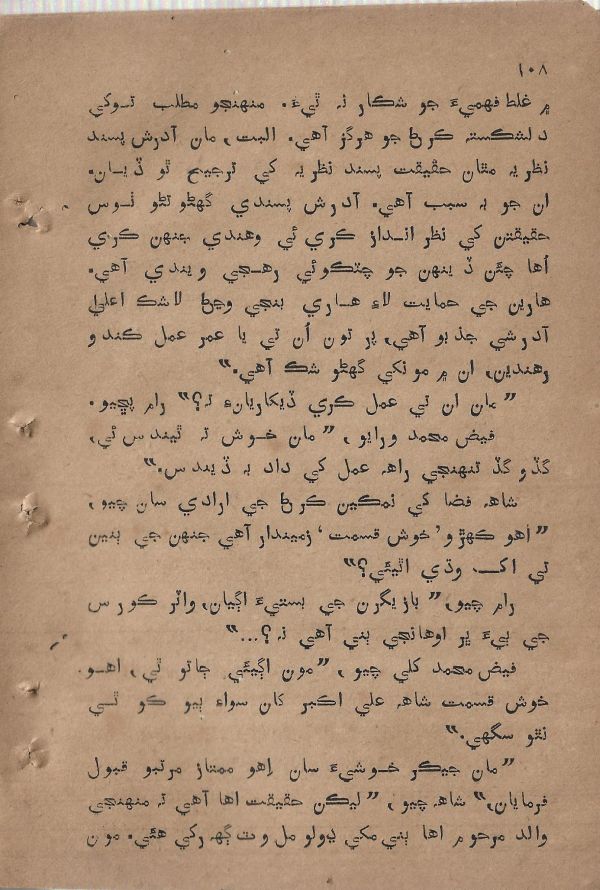 ١٠٨
۾ غلط فهميءَ جو شڪار نہ ٿيءُ. منهنجو مطلب توکي
دلشڪستہ ڪرڻ جو هرگز آهي. البت، مان آدرش پسند
نظريہ مٿان حقيقت پسند نظريہ کي ترجيح ٿو ڏيان.
ان جو بہ سبب آهي. آدرش پسندي گهڻو تڻو ٺوس
حقيقتن کي نظر انداز ڪري ئي وهندي جنهن ڪري
اُها چئن ڏينهن جو چٽڪو ئي رهجي ويندي آهي.
هارين جي حمايت لاءِ هاري بنجي وڃڻ لاشڪ اعليٰ
آدرشي جذبو آهي، پر تون اُن تي يا عمر عمل ڪندو
رهندين، ان ۾ مونکي گهڻو شڪ آهي.“
”مان ان تي عمل ڪري ڏيکاريانءِ تہ؟“ رام پڇيو.
فيض محمد ورايو، ”مان خوش نہ ٿيندس ئي،
گڏو گڏ تنهنجي راهہ عمل کي داد بہ ڏيندس.“
شاهہ فضا کي نمڪين ڪرڻ جي ارادي سان چيو،
”اهو ڪهڙو ’خوش قسمت‘ زميندار آهي جنهن جي ٻنين
تي اک وڌي اٿيئي؟“
رام چيو، ”بازيگرن جي بستيءَ اڳيان، واٽر ڪورس
جي ٻيءَ ڀر اوهانجي ٻني آهي نہ؟...“
فيض محمد کلي چيو، ”مون اڳيئي ڄاتو ٿي، اهو
خوش قسمت شاهہ علي اڪبر کان سواءِ ٻيو ڪو ٿي
نٿو سگهي.“
”مان جيڪر خوشيءَ سان اِهو ممتاز مرتبو قبول
فرمايان،“ شاهہ چيو، ”ليڪن حقيقت اها آهي تہ منهنجي
والد مرحوم اها ٻني مکي ڍولو مل وٽ ڳهہ رکي هئي. مون